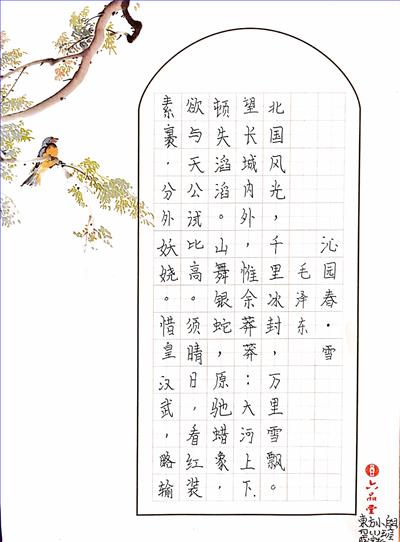 沁园春·雪
毛泽东
北国风光，千里冰封，万里雪飘。
望长城内外，惟余莽莽：大河上下.
顿失滔滔。山舞银蛇，原驰蜡象，
欲与天公试比高。须晴日，看红装
素裹．分外妖娆。惜皇汉武，略输
六品堂